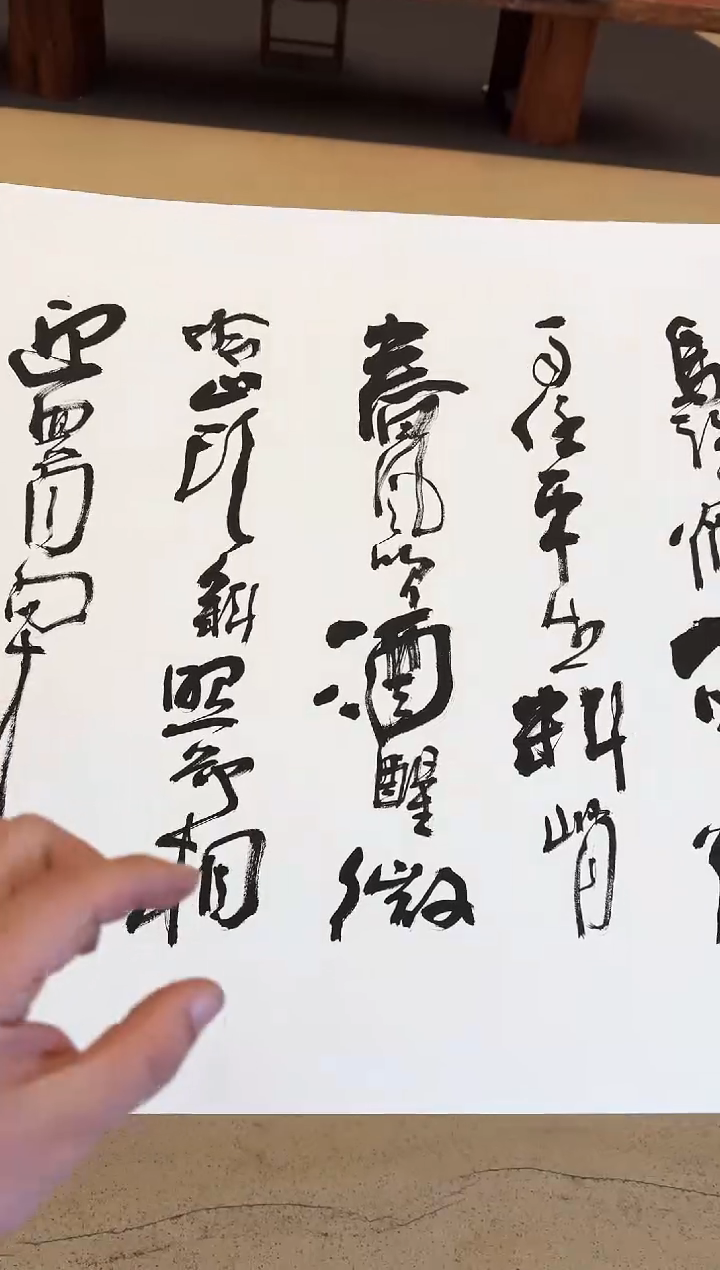 馬誰怕一
雨任平生料峭
春風吹酒醒微
冷山頭斜照却相
迎回首向